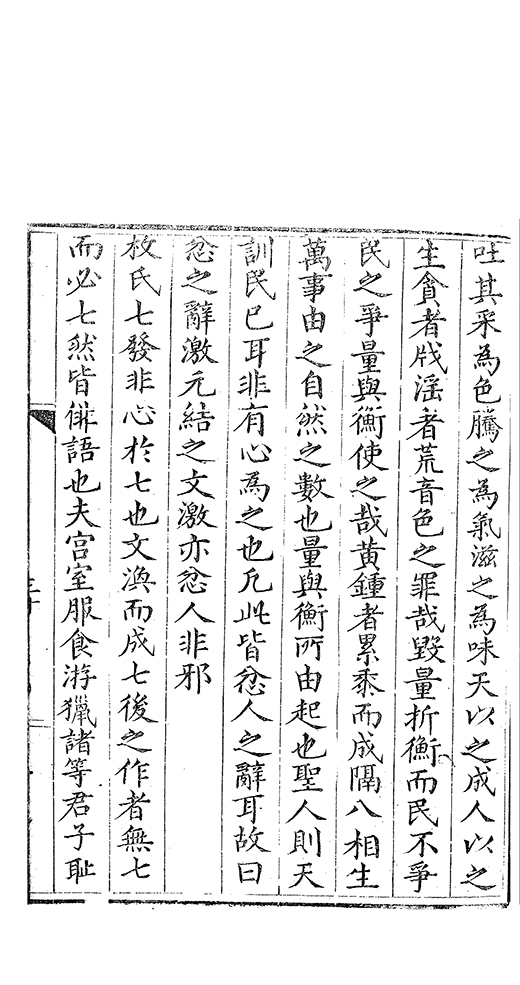 吐其采為色騰之為氣滋之為味天以之成人以之
生貪者戕滛者荒音色之罪哉毀量折衡而民不爭
民之爭量與衡使之哉黃鍾者累黍而成隔八相生
萬事由之自然之數也量與衡所由起也聖人則天
訓民已耳非有心為之也凡此皆忿人之辭耳故曰
忿之辭激元結之文激亦忿人非邪
枚氏七發非心於七也文渙而成七後之作者無七
而必七然皆俳語也夫宫室服食游獵諸等君子恥
三十